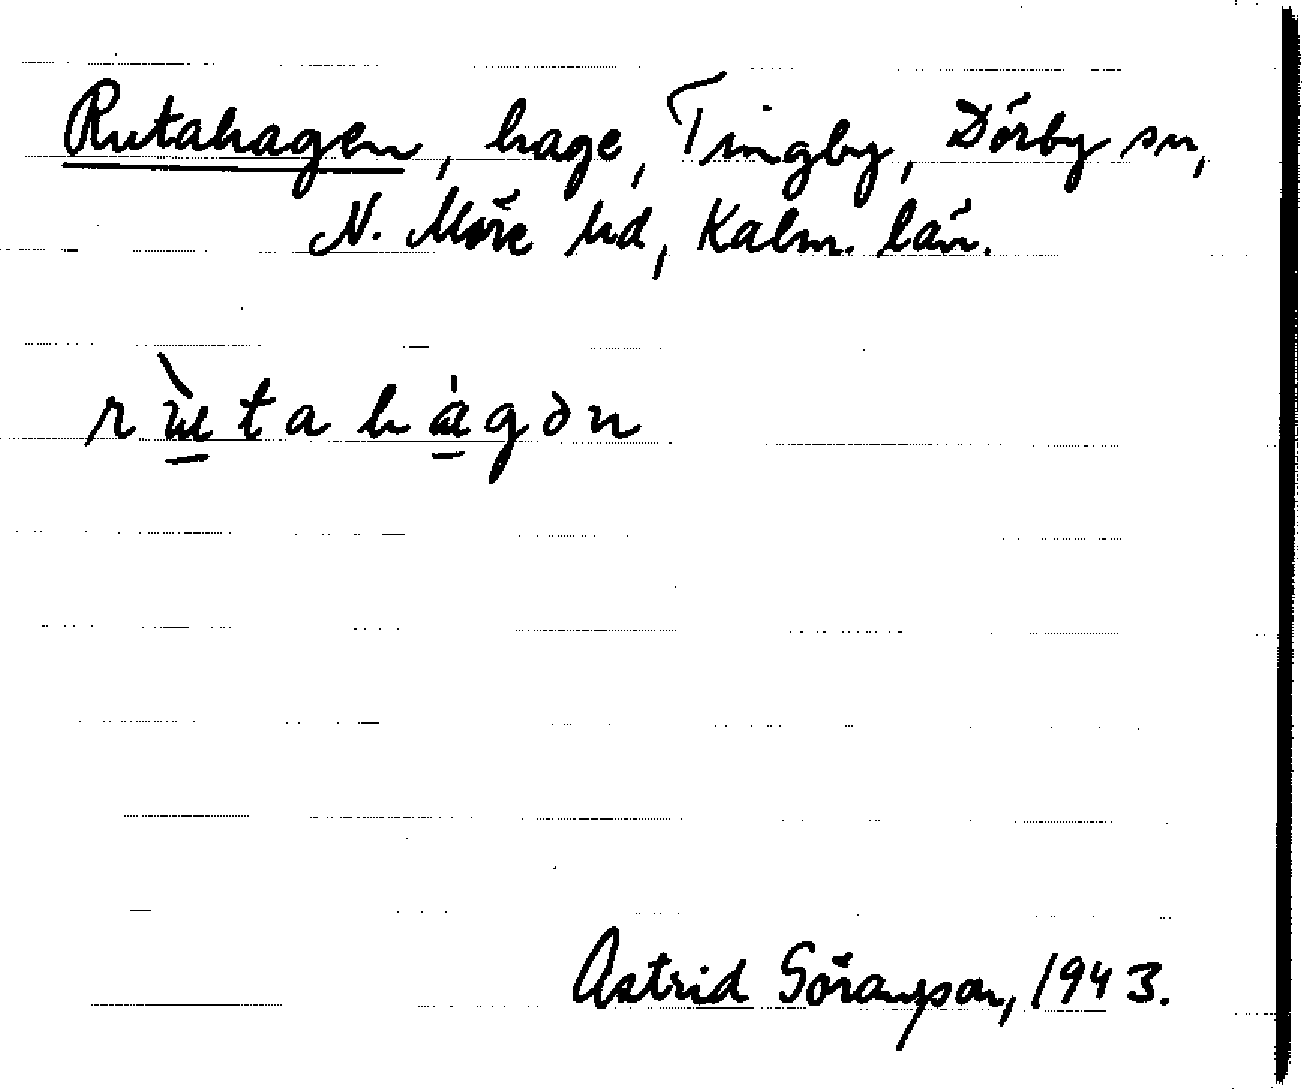 Rutahagen, hage, Tingby, Dörby sn,
N. Möre hd, Kalm. län.
rùtahágən
Astrid Göransson, 1943.